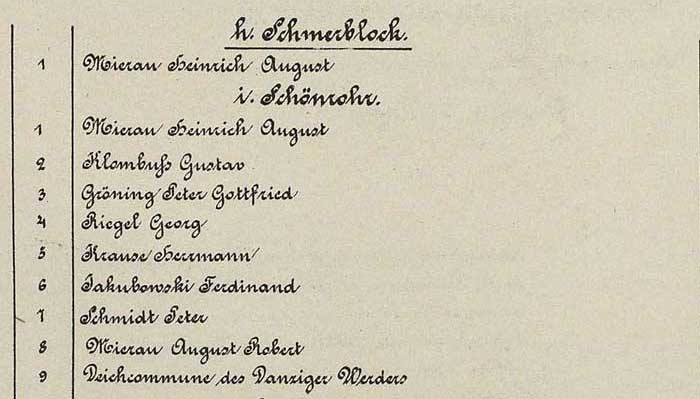 h. Schmerblock.
1 Mierau Heinrich August
i. Schönrohr.
1 Mierau Heinrich August
2 Klombuß Gustav
3 Gröning Peter Gottfried
4 Riegel Georg
5 Krause Herrmann
6 Jakubowski Ferdinand
7 Schmidt Peter
8 Mierau August Robert
9 Deichcommune des Danziger Werders